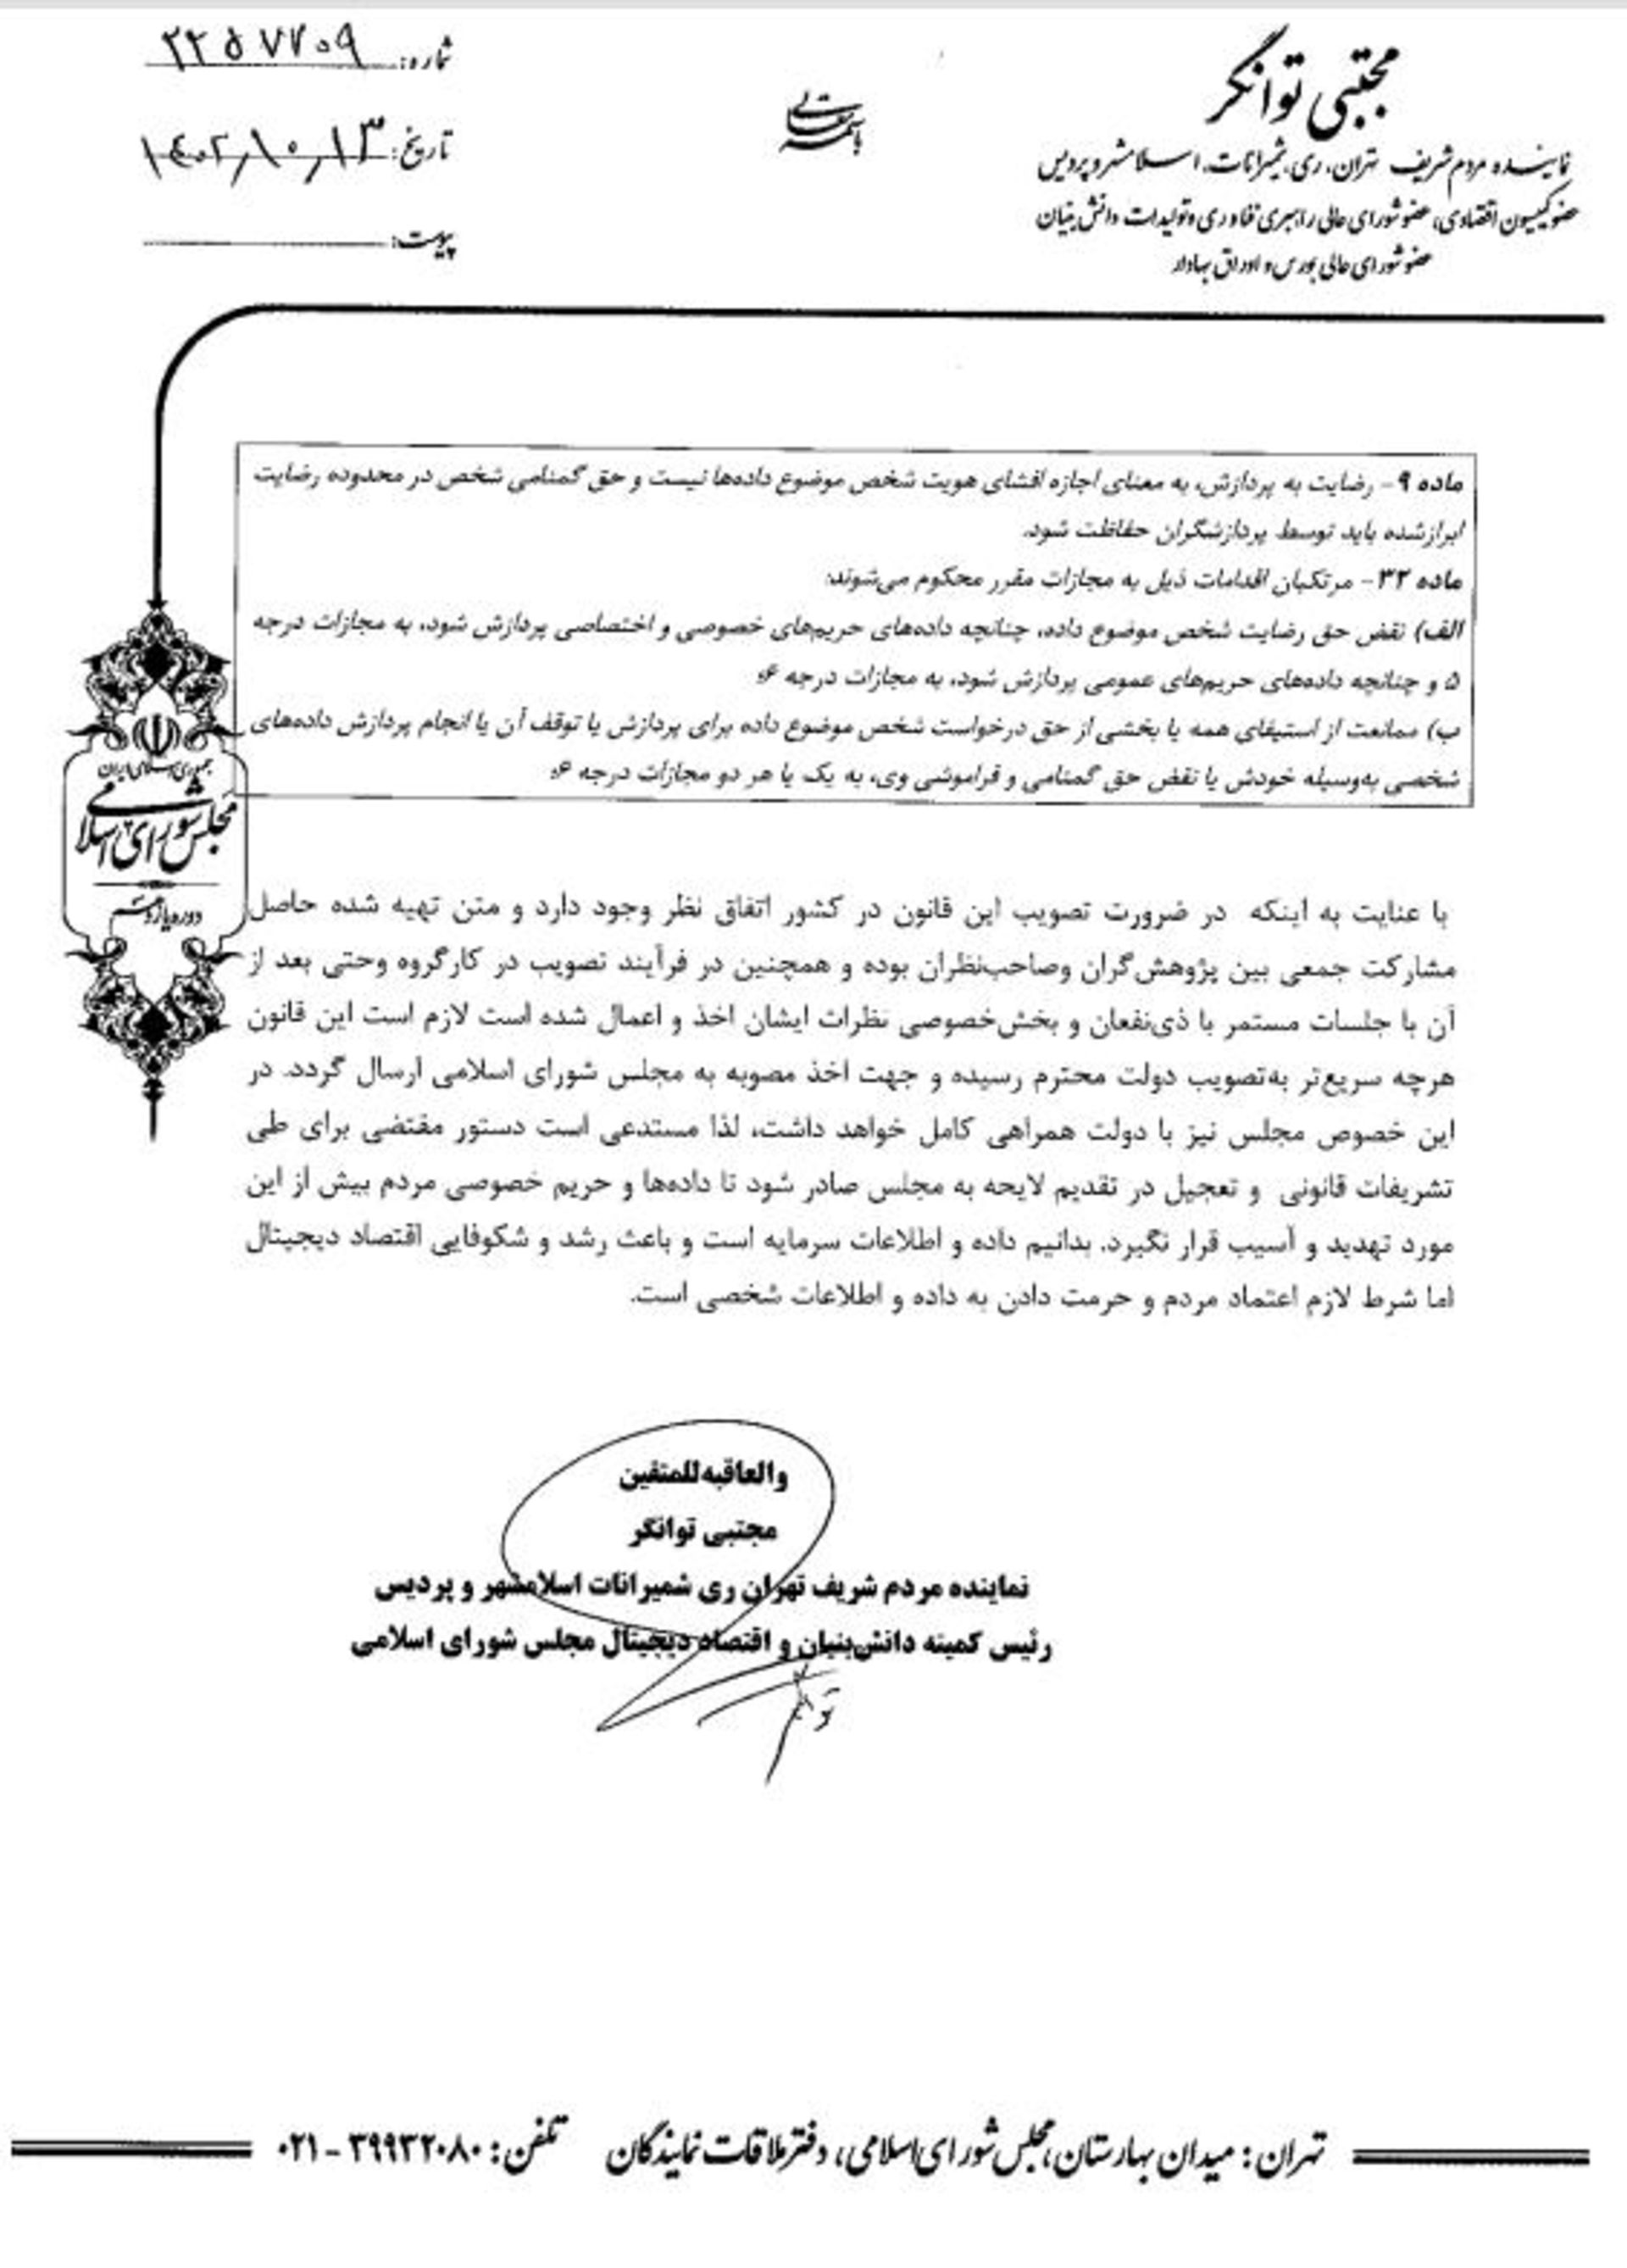 مجتبی توانگر
نماینده مردم شریف تهران، ری، شمیرانات، اسلامشهر و پردیس
عضو کمیسیون اقتصادی، عضو شورای عالی راهبری فناوری و تولیدات دانش بنیان
عضو شورای عالی بورس و اوراق بهادار
باسمه تعالی
شماره: ۲۲۵۷۷۰۹
تاریخ: ۱۴۰۲,۱۰,۱۳
پیوست:
ماده ۹- رضایت به پردازش، به معنای اجازه افشای هویت شخص موضوع داده‌ها نیست و حق گمنامی شخص در محدوده رضایت
ابرازشده باید توسط پردازشگران حفاظت شود.
ماده ۳۲- مرتکبان اقدامات ذیل به مجازات مقرر محکوم می‌شوند:
الف) نقض حق رضایت شخص موضوع داده، چنانچه داده‌های حریم‌های خصوصی و اختصاصی پردازش شود، به مجازات درجه
۵ و چنانچه داده‌های حریم‌های عمومی پردازش شود، به مجازات درجه ۶؛
ب) ممانعت از استیفای همه یا بخشی از حق درخواست شخص موضوع داده برای پردازش یا توقف آن یا انجام پردازش داده‌های
شخصی به‌وسیله خودش یا نقض حق گمنامی و فراموشی وی، به یک یا هر دو مجازات درجه ۶؛
جمهوری اسلامی ایران
مجلس شورای اسلامی
دوره یازدهم
با عنایت به اینکه در ضرورت تصویب این قانون در کشور اتفاق نظر وجود دارد و متن تهیه شده حاصل
مشارکت جمعی بین پژوهش‌گران وصاحب‌نظران بوده و همچنین در فرآیند تصویب در کارگروه وحتی بعد از
آن با جلسات مستمر با ذی‌نفعان و بخش‌خصوصی نظرات ایشان اخذ و اعمال شده است لازم است این قانون
هرچه سریع‌تر به‌تصویب دولت محترم رسیده و جهت اخذ مصوبه به مجلس شورای اسلامی ارسال گردد. در
این خصوص مجلس نیز با دولت همراهی کامل خواهد داشت، لذا مستدعی است دستور مقتضی برای طی
تشریفات قانونی و تعجیل در تقدیم لایحه به مجلس صادر شود تا داده‌ها و حریم خصوصی مردم بیش از این
مورد تهدید و آسیب قرار نگیرد. بدانیم داده و اطلاعات سرمایه است و باعث رشد و شکوفایی اقتصاد دیجیتال
اما شرط لازم اعتماد مردم و حرمت دادن به داده و اطلاعات شخصی است.
والعاقبه‌للمتقین
مجتبی توانگر
نماینده مردم شریف تهران ری شمیرانات اسلامشهر و پردیس
رئیس کمیته دانش‌بنیان و اقتصاد دیجیتال مجلس شورای اسلامی
تهران: میدان بهارستان، مجلس شورای اسلامی، دفتر ملاقات نمایندگان تلفن: ۳۹۹۳۲۰۸۰ - ۰۲۱